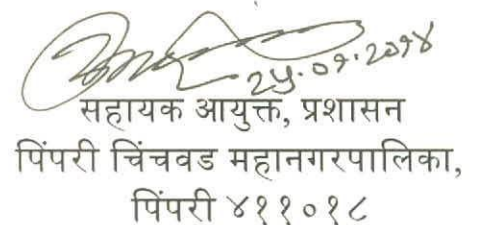 २५.०१.२०१४
सहायक आयुक्त, प्रशासन
पिंपरी चिंचवड महानगरपालिका,
पिंपरी ४११०१८